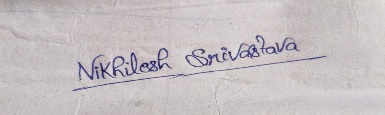 Nikhilesh Srivastava